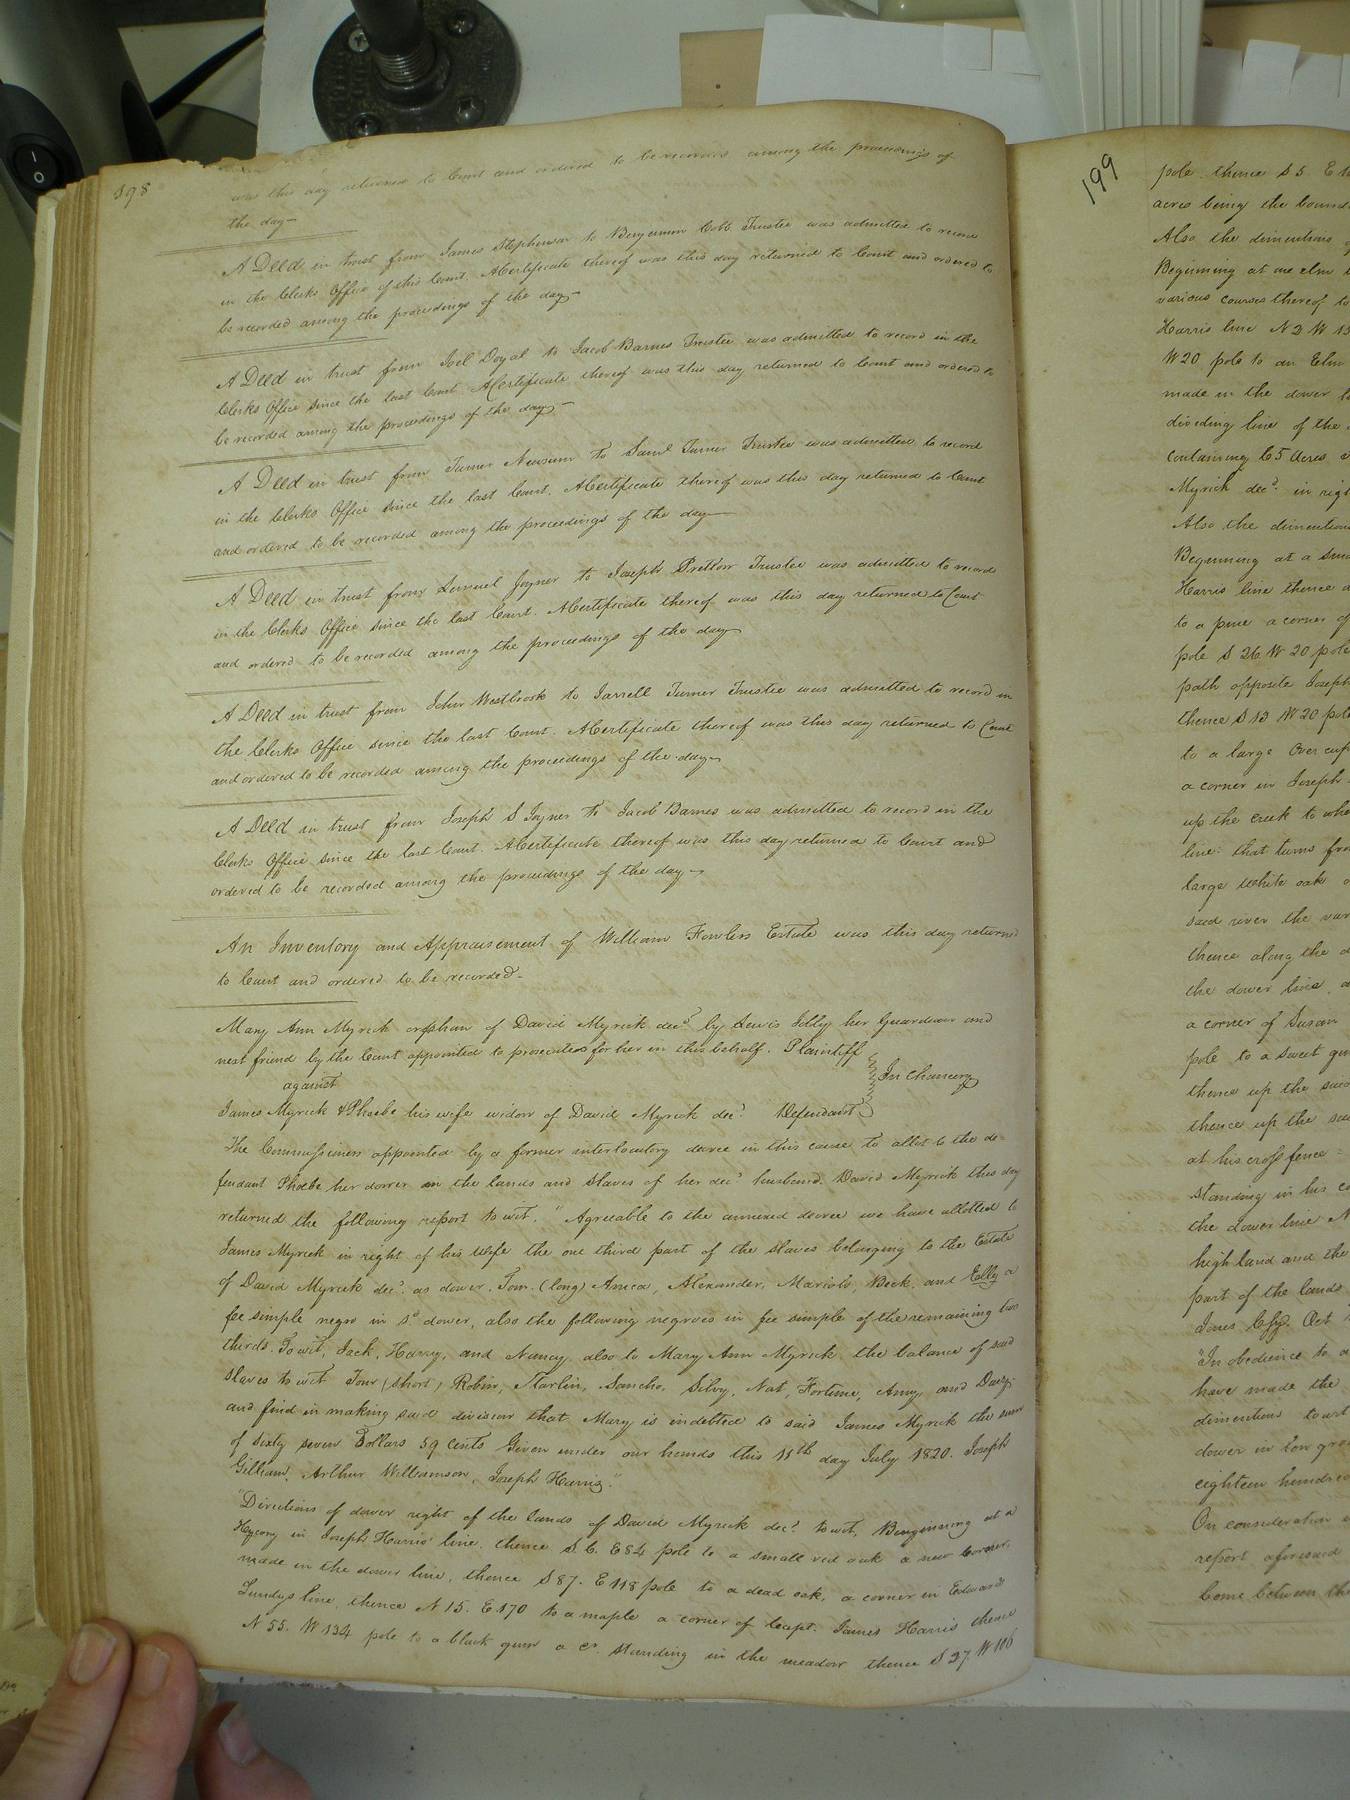 198
was this day returned to Court and ordered to be recorded among the proceedings of
the day—
A Deed in trust from James Stephenson to Benjamin Cobb Trustee was admitted to record
in the Clerks Office of this Court. A Certificate thereof was this day returned to Court and ordered to
be recorded among the proceedings of the day—
A Deed in trust from Joel Doyal to Jacob Barnes Trustee was admitted to record in the
Clerks Office since the last Court. A Certificate thereof was this day returned to Court and ordered to
be recorded among the proceedings of the day—
A Deed in trust from Turner Newsum to Saml Turner Trustee was admitted to record
in the Clerks Office since the last Court. A Certificate thereof was this day returned to Court
and ordered to be recorded among the proceedings of the day—
A Deed in trust from Lemuel Joyner to Joseph Pretlow Trustee was admitted to record
in the Clerks Office since the last Court. A Certificate thereof was this day returned to Court
and ordered to be recorded among the proceedings of the day
A Deed in trust from John Westbrook to Jarrell Turner Trustee was admitted to record in
the Clerks Office since the last Court. A Certificate thereof was this day returned to Court
and ordered to be recorded among the proceedings of the day—
A Deed in trust from Joseph S Joyner to Jacob Barnes was admitted to record in the
Clerks Office since the last Court. A Certificate thereof was this day returned to Court and
ordered to be recorded among the proceedings of the day—
An Inventory and Appraisement of William Fowlers Estate was this day returned
to Court and ordered to be recorded—
Mary Ann Myrick orphan of David Myrick decd by Lewis her Guardian and
next friend by the Court appointed to prosecute for her in this behalf. Plaintiff
against
In Chancery
James Myrick & Phoebe his wife widow of David Myrick decd Defendants
The Commissioners appointed by a former interlocutory decree in this cause to allot to the de-
fendant Phoebe her dower in the lands and slaves of her decd husband David Myrick this day
returned the following report to wit. "Agreeable to the annexed decree we have allotted to
James Myrick in right of his Wife the one third part of the slaves belonging to the Estate
of David Myrick decd. as dower. Tom (long) Amca, Alexander, Beck, and Edly a
fee simple negro in sd dower, also the following negroes in fee simple of the remaining two
thirds. Towit, Jack, Harry, and Nancy also to Mary Ann Myrick the balance of said
slaves to wit Tom (short) Robin, Starlin, Sancho, Silvy, Nat, Fortune, Amy and Davy
and find in making said division that Mary is indebted to said James Myrick the sum
of sixty seven Dollars 59 Cents Given under our hands this 11th day July 1820. Joseph
Gilliam, Arthur Williamson, Joseph Harris."
"Directions of dower right of the lands of David Myrick decd. towit, Beginning at a
Hycory in Joseph Harris' line, thence S. 6. E 84 pole to a small red oak a new Corner,
made in the dower line, thence S 87. E 118 pole to a dead oak, a corner in Edward
Lundys line thence N 15. E 170 to a maple a corner of Capt. James Harris thence
N 55. W 134 pole to a black gum a cr. standing in the meadow thence S 37. W 106
199
pole thence S 5 E
acres being the
Also the dimentions
Beginning at one elm
various courses thereof to
Harris line N 3 W
W 20 pole to an Elm
made in the dower
dividing line of the
containing 65 Acres
Myrick decd. in
Also the
Beginning at a
Harris line thence
to a pine a corner
pole S 26 W 20 pole
path opposite Joseph
thence S 13 W 20 pole
to a large Over cup
a corner in Joseph
up the creek to
line that turns
large white oak
said river the
thence along the
the dower line
a corner of Susan
pole to a sweet
thence up the
thence up the
at his cross fence
standing in his
the dower line N
high land and the
part of the lands
Jones Oct
"In obedience to a
have made the
dimentions towit
dower in low
eighteen
On consideration
report aforesaid
come between the